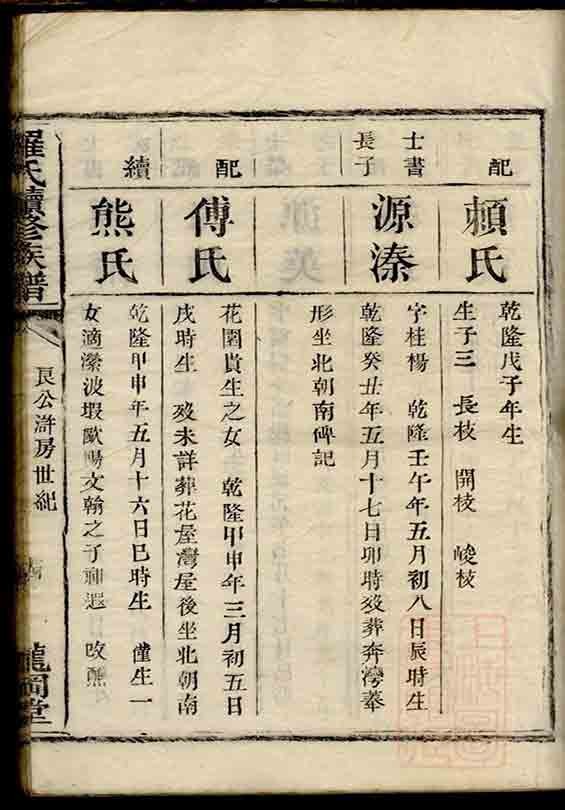 配
賴氏
乾隆戊子年生
生子三 長枝 開枝 峻枝
士書
長子
源溱
字桂楊 乾隆壬午年五月初八日辰時生
乾隆癸丑年五月十七日卯時歿葬奔灣墓
形坐北朝南碑記
配
傅氏
花園貴生之女 乾隆甲申年三月初五日
戌時生 歿未詳葬花屋灣屋後坐北朝南
續
熊氏
乾隆甲申年五月十六日巳時生 僅生一
女滴瀠波塅歐陽文翰之子 改醮
羅氏續修族譜
艮公滸房世紀
龍岡堂